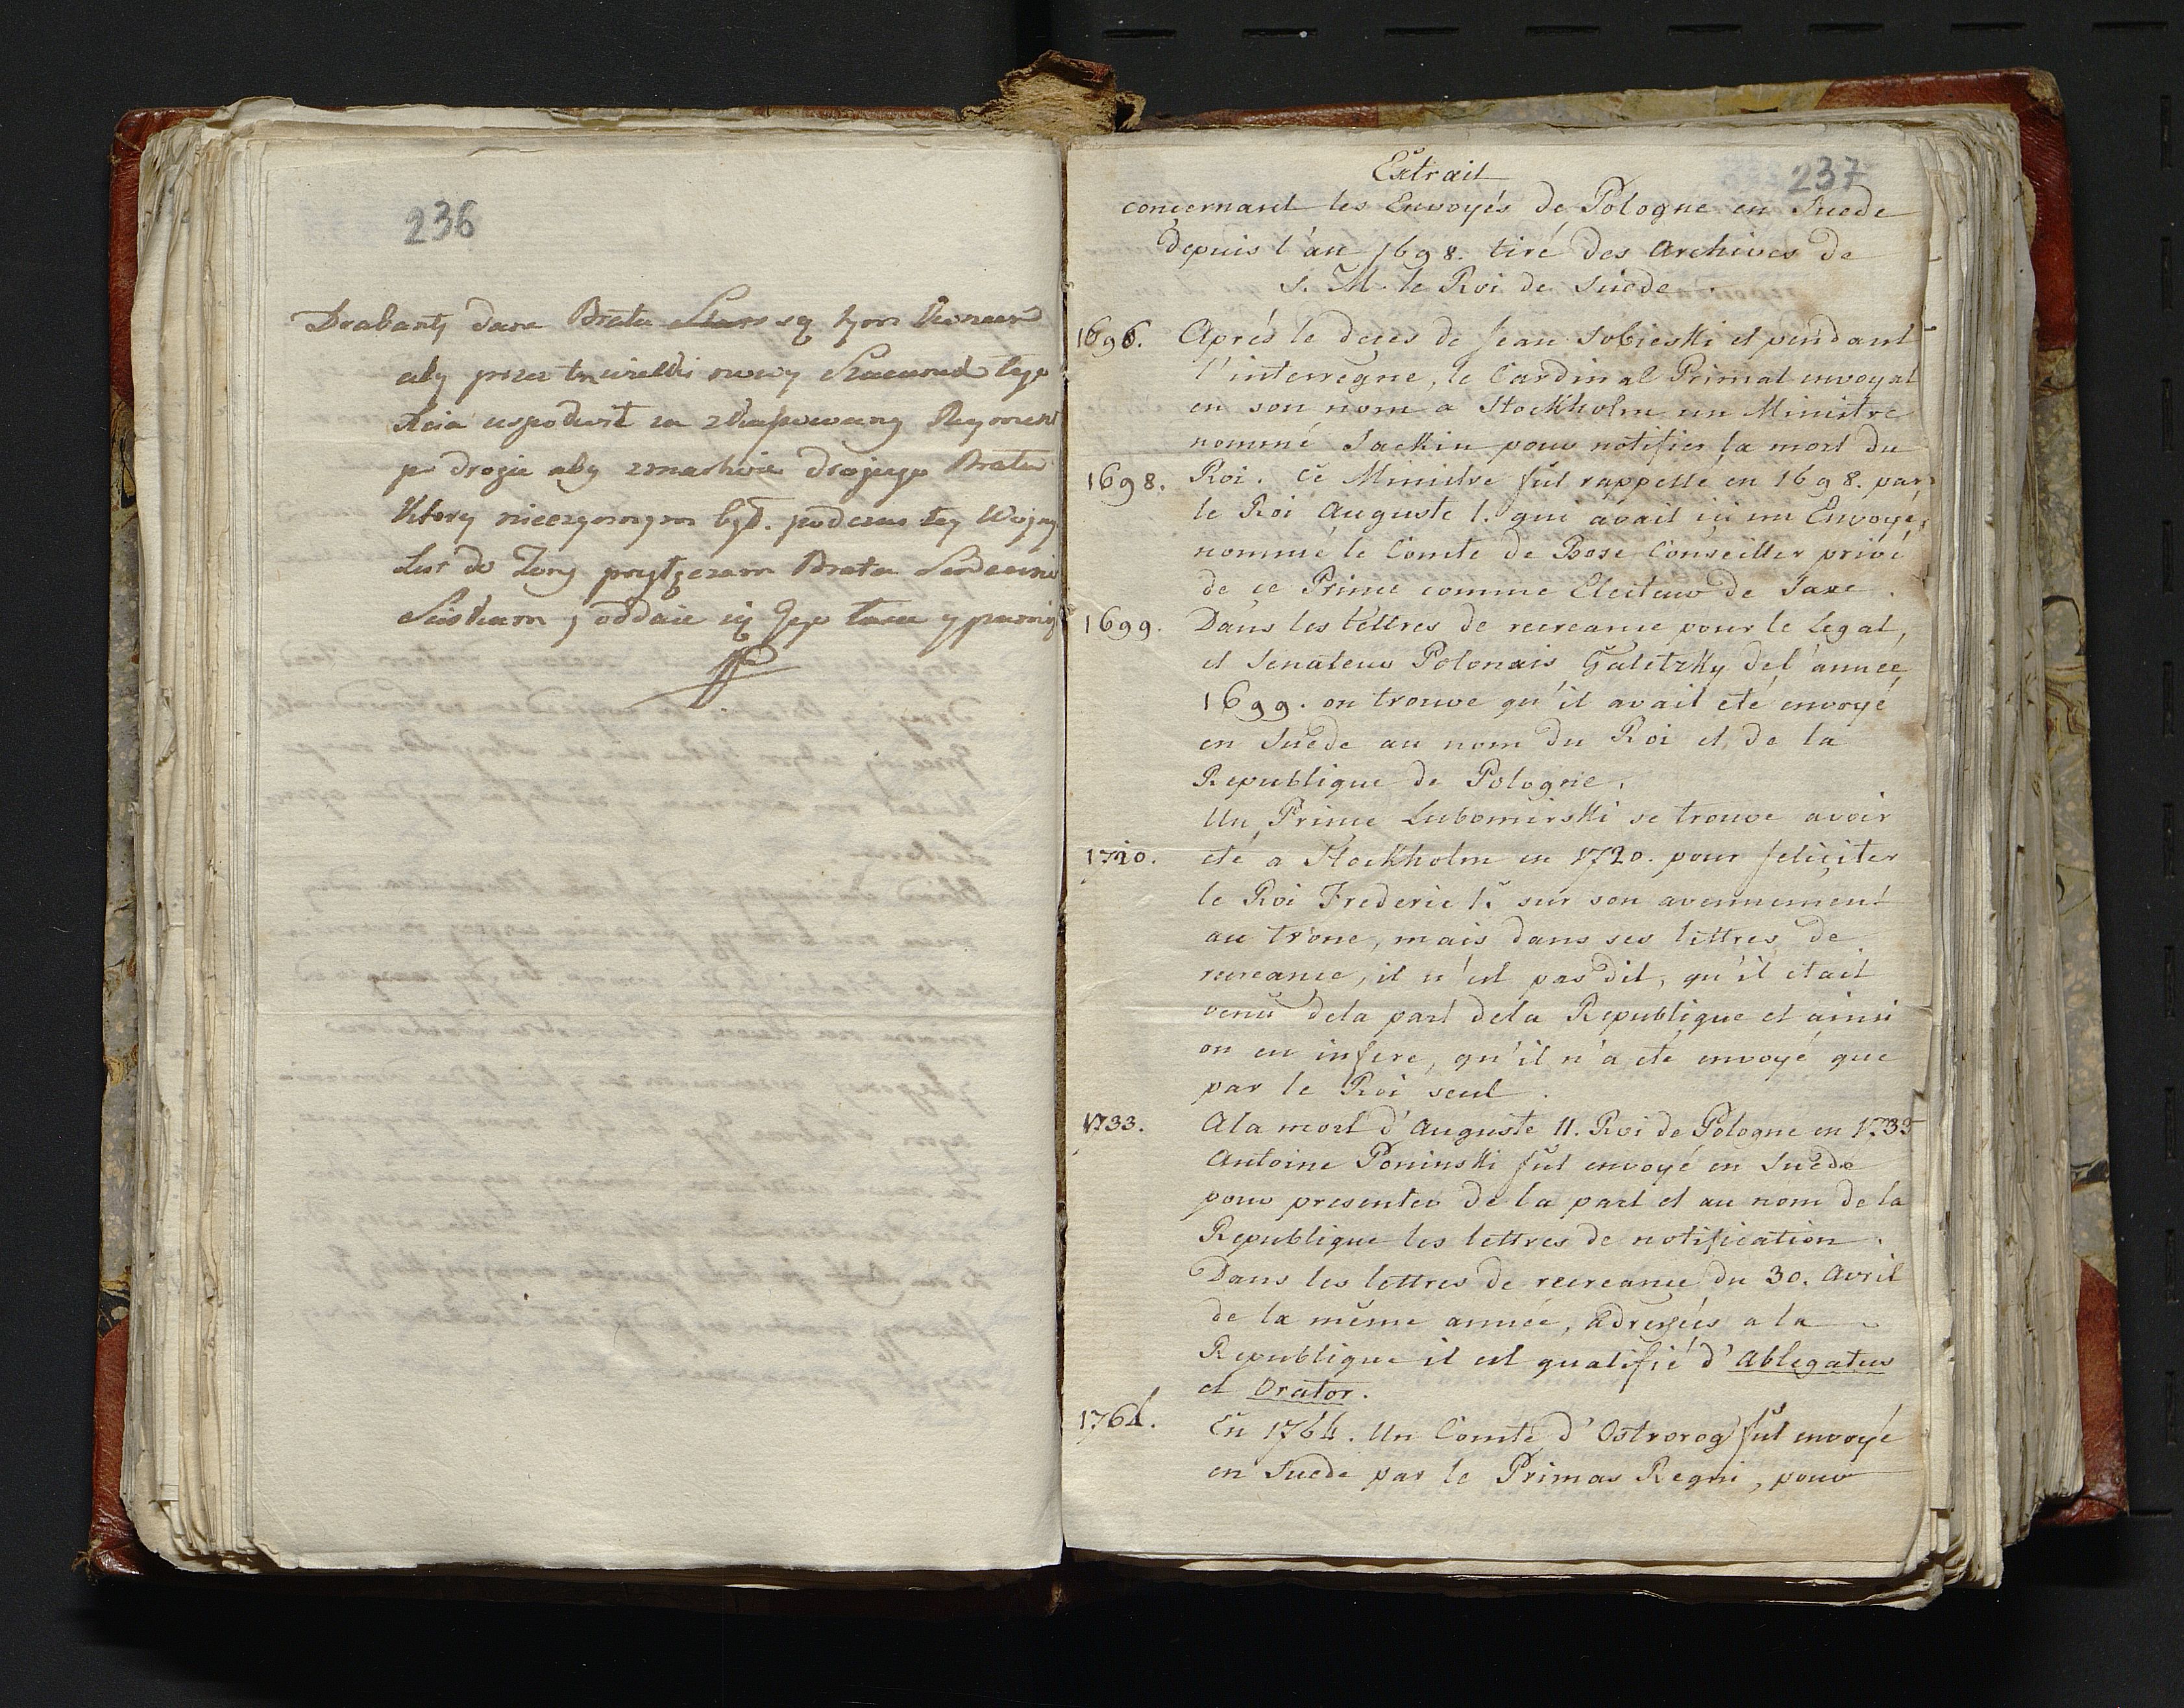 236
Drabanty dane Brata są tym
aby przez nowy tego
za Regiment
po drogie aby zmarkwie drogiego Brata
Ktory nieczynnym był. podczas tey Wojny
List do Zony przyłączam Brata Serdecznie
Sciskam y oddaie się Jego łasce y pamięi
237
Extrait
concernant les Envoyés de Pologne en Suede
depuis l'an 1698. tiré des Archives de
S. M. le Roi de Suede.
1696. Aprés le deces de Jean Sobieski et pendant
l'interregne, le Cardinal Primat envoyat
en son nom a Stockholm un Ministre
nommé Sackin pour notifier la mort du
1698. Roi. Ce Ministre fût rappellé en 1698. par
le Roi Auguste 1. qui avait ici un Envoyé,
nommé le Comte de Bose Conseiller privé
de ce Prince comme Electeur de Saxe.
1699. Dans les lettres de recreance pour le Legat,
et Senateur Polonais Galetzky del'année
1699. on trouve qu'il avait eté envoyé
en Suede au nom du Roi et de la
Republique de Pologne.
Un Prince Lubomirski se trouve avoir
1720. eté a Stockholm en 1720. pour feliciter
le Roi Frederic 1. sur son avennement
au trône, mais dans ses lettres de
recreance, il n'est pas dit, qu'il était
venu dela part dela Republique et ainsi
on en infere, qu'il n'a eté envoyé que
par le Roi seul.
1733. A la mort d'Auguste 11. Roi de Pologne en 1733
Antoine Poninski fût envoyé en Suede
pour presenter de la part et au nom de la
Republique les lettres de notification.
Dans les lettres de recreance du 30. Avril
de la même année, adressées a la
Republique il est qualifié d'Ablegatus
et Orator.
1764. En 1764. Un Comte d'Ostrorog fût envoyé
en Suede par le Primas Regni, pour